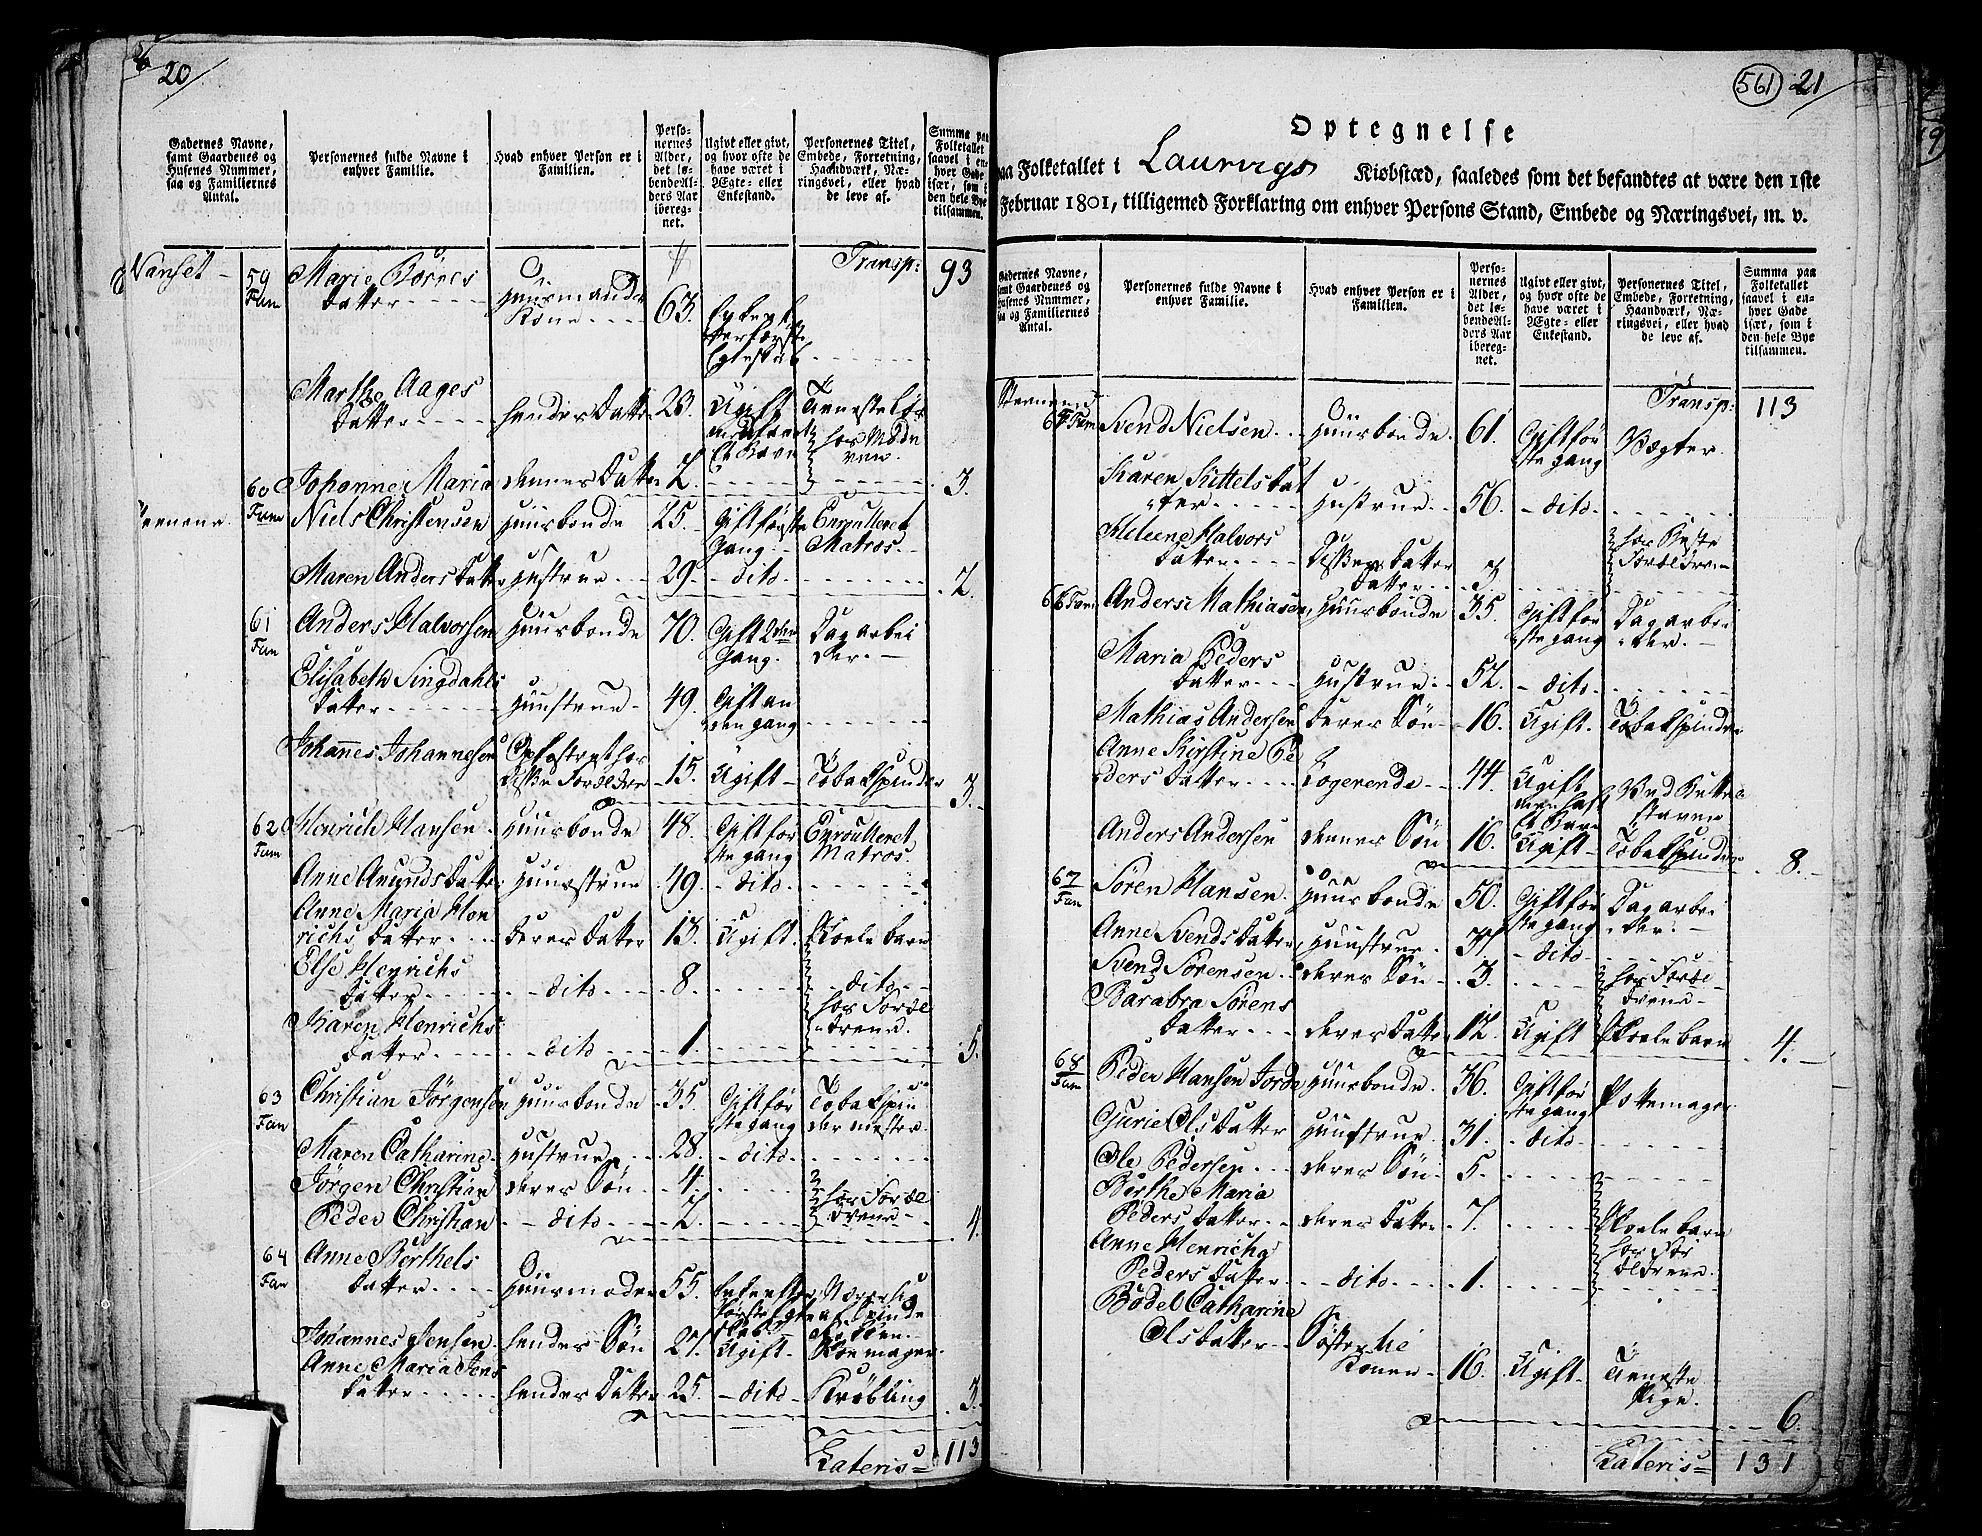 20
Gadernes Navne,
samt Gaardenes og
Husenes Nummer,
saa og Familiernes
Antal.
Personernes fulde Navne i
enhver Familie.
Hvad enhver Person er i
Familien.
Perso-
nernes
Alder,
det lø-
bende Al-
ders Aar
iberegnet.
Ugivt eller givt,
og hvor ofte de
have været i
Ægte- eller
Enkestand.
Personernes Titel,
Embede, Forretning,
Haandværk, Næ-
ringsvei, eller hvad
de leve af.
Summa paa
Folketallet
saavel i en-
hver Gade
især, som i
den hele Bye
tilsammen.
Transp: 93
Nanset 59 Fam
Marie Börres
Datter Huusmands
Kone 63.
Marthe Aages
Datter hendes Datter 23. Ugift
Johanne Maria dennes Datter 2. 3.
60 Fam Niels Christensen Huusbonde 25. Gift første Enroulleret
Gang Matros
Maren Anders Datter Hustrue 29. dito 2.
61 Fam Anders Halvorsen Huusbonde 70. Gift 2den Dagarbei
Gang. der.
Elisabeth Singdahls
Datter Huustrue 49. Gift an
den gang
Johannes Johannesen Opfostret hos
disse Forældre 15. Ugift Tobakspinder 3.
62 Fam Henrich Hansen Huusbonde 48. Gift før Enroulleret
ste gang Matros.
Anne Amunds Datter Huustrue 49. dito
Anne Maria Hen
richs Datter deres Datter 13. Ugift. Skole barn
Else Henrichs
Datter dito 8. dito
Karen Henrichs hos Foræl
Datter dito 1. drene. 5.
63 Fam Christian Jörgensen Huusbonde 35. Gift før Tobakspin
ste gang der mester.
Maren Catharine Hustrue 28. dito
Jörgen Christian deres Sön 4. hos Foræl
Peder Christian dito 2. drene 4.
64 Fam Anne Berthels
Datter Huusmoder 55.
Johannes Jensen hendes Sön 27. Ugift Skoemager
Anne Maria Jens
Datter hendes Datter 25. dito Krøbling 3.
Lateris 113
561 21
Optegnelse
paa Folketallet i Laurvigs Kiøbstæd, saaledes som det befandtes at være den 1ste
Februar 1801, tilligemed Forklaring om enhver Persons Stand, Embede og Næringsvei, m. v.
Gadernes Navne,
samt Gaardenes og
Husenes Nummer,
saa og Familiernes
Antal.
Personernes fulde Navne i
enhver Familie.
Hvad enhver Person er i
Familien.
Perso-
nernes
Alder,
det lø-
bende Al-
ders Aar
iberegnet.
Ugivt eller givt,
og hvor ofte de
have været i
Ægte- eller
Enkestand.
Personernes Titel,
Embede, Forretning,
Haandværk, Næ-
ringsvei, eller hvad
de leve af.
Summa paa
Folketallet
saavel i en-
hver Gade
især, som i
den hele Bye
tilsammen.
Transp: 113
Fam Svend Nielsen Huusbonde 61. Gift før
ste gang Vægter.
Karen Kittels Dat
ter Hustrue 56. dito
Helene Halvors
Datter Datter
Datter 3
66 Fam Anders Mathiasen Huusbonde 35. Gift før Dagarbei
ste gang der.
Maria Peders
Datter Hustrue 52. dito
Mathias Andersen deres Sön 16. Ugift. Tobakspinder
Anne Kirstine Pe
ders Datter Logerende 44. Ugift
Anders Andersen dennes Sön 16. Ugift Tobakspinder 8.
67 Fam Sören Hansen Huusbonde 50. Gift før Dagarbei
ste gang der.
Anne Svends Datter Huustrue 37 dito
Svend Sörensen deres Sön 3. hos Foræl
drene
Barabra Sörens
Datter deres Datter 12. Ugift Skole barn 4.
68 Fam Peder Hansen Jorde Huusbonde 36. Gift før
ste gang Pottemager
Gurie Ols Datter Huustrue 31. dito
Ole Pedersen deres Sön 5.
Berthe Maria
Peders Datter deres Datter 7. Skole barn
Anne Henricha hos For
Peders Datter dito 1. ældrene
Bodel Catharine
Ols Datter Söster til
Konen 16. Ugift Tieneste
Pige. 6.
Lateris 131